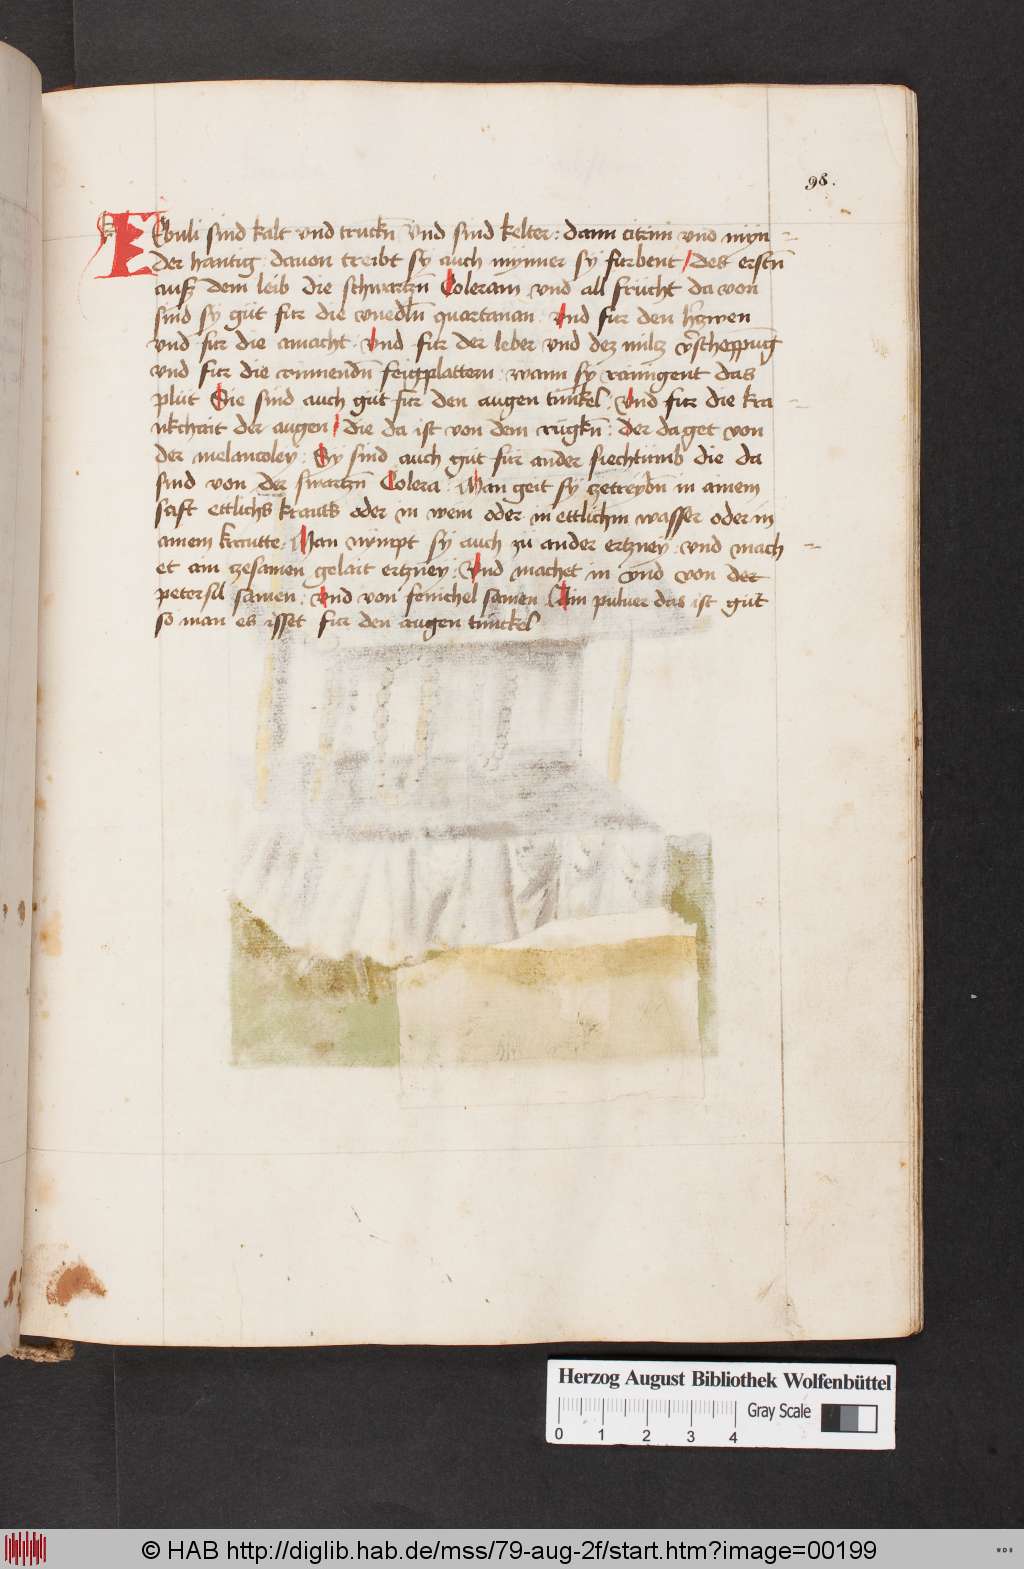 98.
Ebuli sind kalt vnd truckn̄ vnd sind kelter : dann citrini vnd myn
der hantig : dauon treibt sy auch mynner sy furbent / des erstn̄
auß dem leib die schwartzn̄ Coleram vnd all frucht da von
sind sy gůt fur die vnedl̄n quartanan . vnd fur den
vnd fur die amacht . vnd fur der leber vnd dez milcz
vnd fur die rinnendn̄ feigplattern : wann sy rainigent das
plůt Sie sind auch gůt fur den augen tunkel . vnd fur die kra
nkchait der augen / die da ist von dem rügkn̄ : der da get von
der melancoley : Sy sind auch gůt fur ander siechtumb die da
sind von der swartzn̄ Colera . Man geit sy zetreybn̄ in ainem
saft ettlichs krautß oder in wein oder in ettlichm wasser oder in
ainem krautte . Man nympt sy auch zů ander ertzney . vnd mach
et ain zesamen gelait ertzney : Vnd machet in vnd von der
petersil samen . vnd von fenichel samen Ain puluer das ist gůt
so man es isset fur den augen tunckel
Herzog August Bibliothek Wolfenbüttel
Gray Scale
0 1 2 3 4
© HAB http://diglib.hab.de/mss/79-aug-2f/start.htm?image=00199